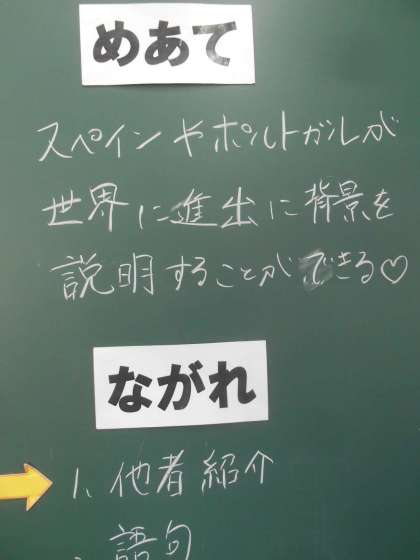 めあて
スペインやポルトガルが
世界に進出に背景を
説明することができる♡
ながれ
1、他者紹介
語句